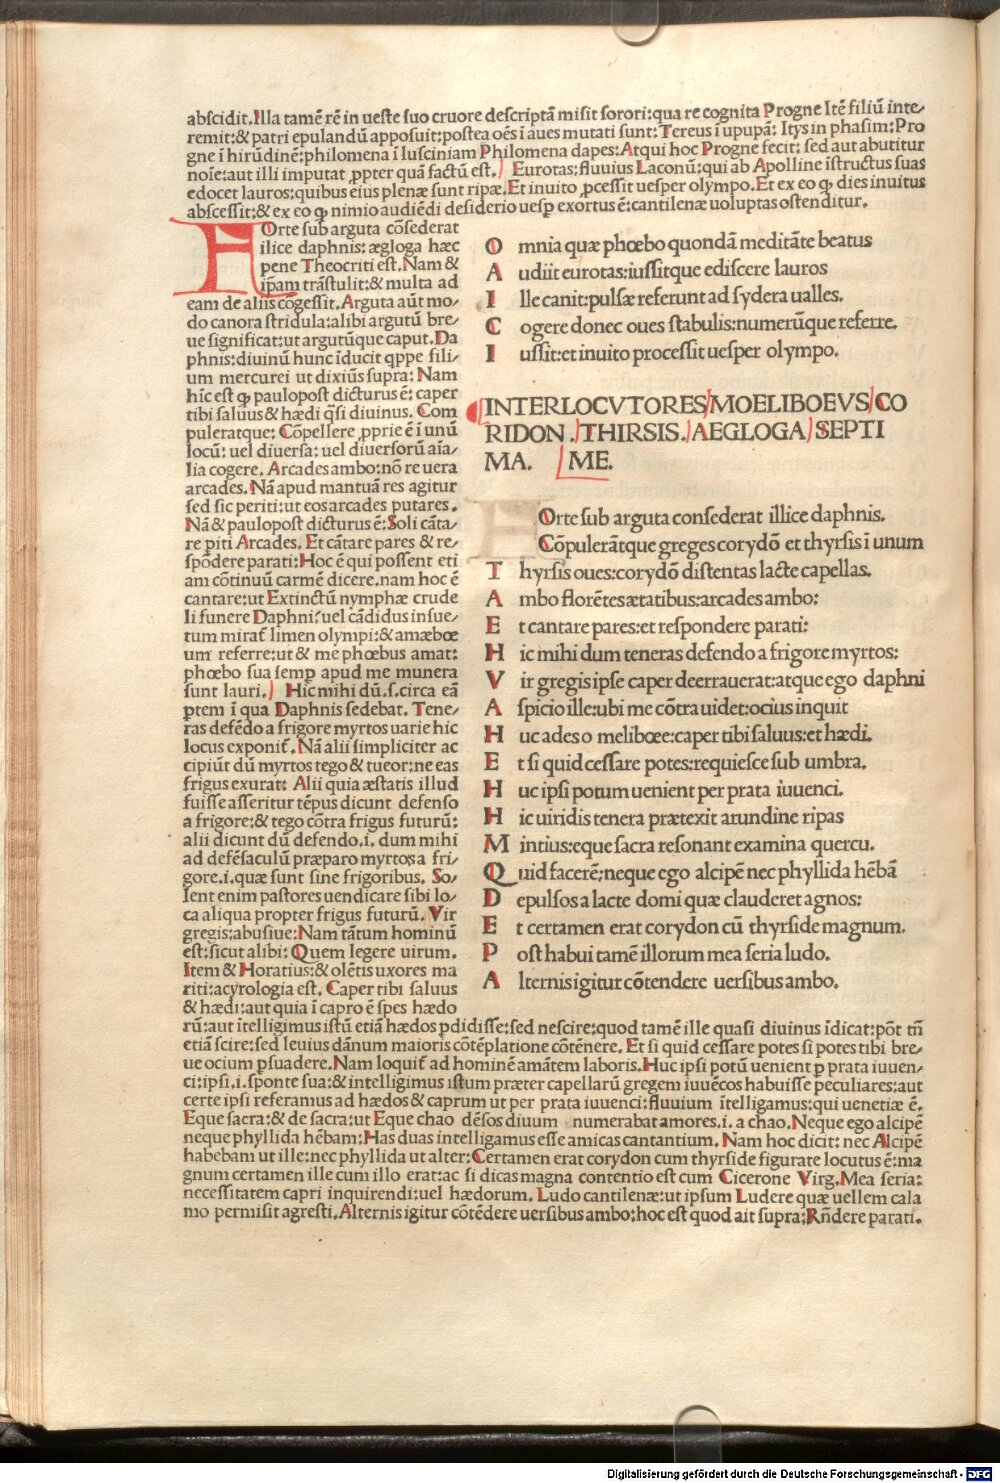 abscidit. Illa tamē rē in ueste suo cruore descriptā misit sorori: qua re cognita Progne Itē filiū inte⸗
remit: & patri epulandū apposuit: postea oēs ī aues mutati sunt: Tereus ī upupā: Itys in phasim: Pro
gne ī hirūdinē: philomena ī lusciniam Philomena dapes: Atqui hoc Progne fecit: sed aut abutitur
noīe: aut illi imputat ꝓpter quā factū est. Eurotas: fluuius Laconū: qui ab Apolline īstructus suas
edocet lauros: quibus eius plenæ sunt ripæ. Et inuito ꝓcessit uesper olympo. Et ex eo ꝙ dies inuitus
abscessit: & ex eo ꝙ nimio audiēdi desiderio uesꝑ exortus ē: cantilenæ uoluptas ostenditur.
FOrte sub arguta cōsederat
ilice daphnis: ægloga hæc
pene Theocriti est. Nam &
ip̄am trāstulit: & multa ad
eam de aliis cōgessit. Arguta aūt mo⸗
do canora stridula: alibi argutū bre⸗
ue significat: ut argutūque caput. Da
phnis: diuinū hunc īducit qppe fili⸗
um mercurei ut dixiūs supra: Nam
hīc est ꝙ paulopost dicturus ē: caper
tibi saluus & hædi q̄si diuinus. Com
puleratque: Cōpellere ꝓprie ē ī unū
locū: uel diuersa: uel diuersorū aīa⸗
lia cogere. Arcades ambo: nō re uera
arcades. Nā apud mantuā res agitur
sed sic periti: ut eos arcades putares.
Nā & paulopost dicturus ē: Soli cāta⸗
re ꝑiti Arcades. Et cātare pares & re⸗
spōdere parati: Hoc ē qui possent eti
am cōtinuū carmē dicere. nam hoc ē
cantare: ut Extinctū nymphæ crude
li funere Daphni: uel cādidus insue⸗
tum mirat̄ limen olympi: & amæbœ
um referre: ut & me phœbus amat:
phœbo sua semꝑ apud me munera
sunt lauri. Hic mihi dū. s. circa eā
ꝑtem ī qua Daphnis sedebat. Tene⸗
ras defēdo a frigore myrtos uarie hic
locus exponit̄. Nā alii simpliciter ac
cipiūt dū myrtos tego & tueor: ne eas
frigus exurat: Alii quia æstatis illud
fuisse asseritur tēpus dicunt defenso
a frigore: & tego cōtra frigus futurū:
alii dicunt dū defendo. i. dum mihi
ad defēsaculū præparo myrtos a fri⸗
gore. i. quæ sunt sine frigoribus. So⸗
lent enim pastores uendicare sibi lo⸗
ca aliqua propter frigus futurū. Vir
gregis: abusiue: Nam tātum hominū
est: sicut alibi: Quem legere uirum.
Item & Horatius: & olētis uxores ma
riti: acyrologia est. Caper tibi saluus
& hædi: aut quia ī capro ē spes hædo
rū: aut ītelligimus istū etiā hædos ꝑdidisse: sed nescire: quod tamē ille quasi diuinus īdicat: pōt tn̄
etiā scire: sed leuius dānum maioris cōtēplatione cōtēnere. Et si quid cessare potes si potes tibi bre⸗
ue ocium ꝑsuadere. Nam loquit̄ ad hominē amātem laboris. Huc ipsi potū uenient ꝑ prata iuuen⸗
ci: ipsi. i. sponte sua: & intelligimus istum præter capellarū gregem iuuēcos habuisse peculiares: aut
certe ipsi referamus ad hædos & caprum ut per prata iuuenci: fluuium ītelligamus: qui uenetiæ ē.
Eque sacra: & de sacra: ut Eque chao dēsos diuum numerabat amores. i. a chao. Neque ego alcipē
neque phyllida hēbam: Has duas intelligamus esse amicas cantantium. Nam hoc dicit: nec Alcipē
habebam ut ille: nec phyllida ut alter: Certamen erat corydon cum thyrside figurate locutus ē: ma
gnum certamen ille cum illo erat: ac si dicas magna contentio est cum Cicerone Virg. Mea seria:
necessitatem capri inquirendi: uel hædorum. Ludo cantilenæ: ut ipsum Ludere quæ uellem cala
mo permisit agresti. Alternis igitur cōtēdere uersibus ambo: hoc est quod ait supra: Rn̄dere parati.
O mnia quæ phœbo quondā meditāte beatus
A udiit eurotas: iussitque ediscere lauros
I lle canit: pulsæ referunt ad sydera ualles.
C ogere donec oues stabulis: numerūque referre.
I ussit: et inuito processit uesper olympo.
INTERLOCVTORES MOELIBOEVS CO
RIDON. THIRSIS. AEGLOGA SEPTI
MA. ME.
FOrte sub arguta consederat illice daphnis.
Cōpulerātque greges corydō et thyrsis ī unum
T hyrsis oues: corydō distentas lacte capellas.
A mbo florētes ætatibus: arcades ambo:
E t cantare pares: et respondere parati:
H ic mihi dum teneras defendo a frigore myrtos:
V ir gregis ipse caper deerrauerat: atque ego daphni
A spicio ille: ubi me cōtra uidet: ocius inquit
H uc ades o melibœe: caper tibi saluus: et hædi.
E t si quid cessare potes: requiesce sub umbra.
H uc ipsi potum uenient per prata iuuenci.
H ic uiridis tenera prætexit arundine ripas
M intius: eque sacra resonant examina quercu.
Q uid facerē: neque ego alcipē nec phyllida hēbā
D epulsos a lacte domi quæ clauderet agnos:
E t certamen erat corydon cū thyrside magnum.
P ost habui tamē illorum mea seria ludo.
A lternis igitur cōtendere uersibus ambo.
Digitalisierung gefördert durch die Deutsche Forschungsgemeinschaft - DFG